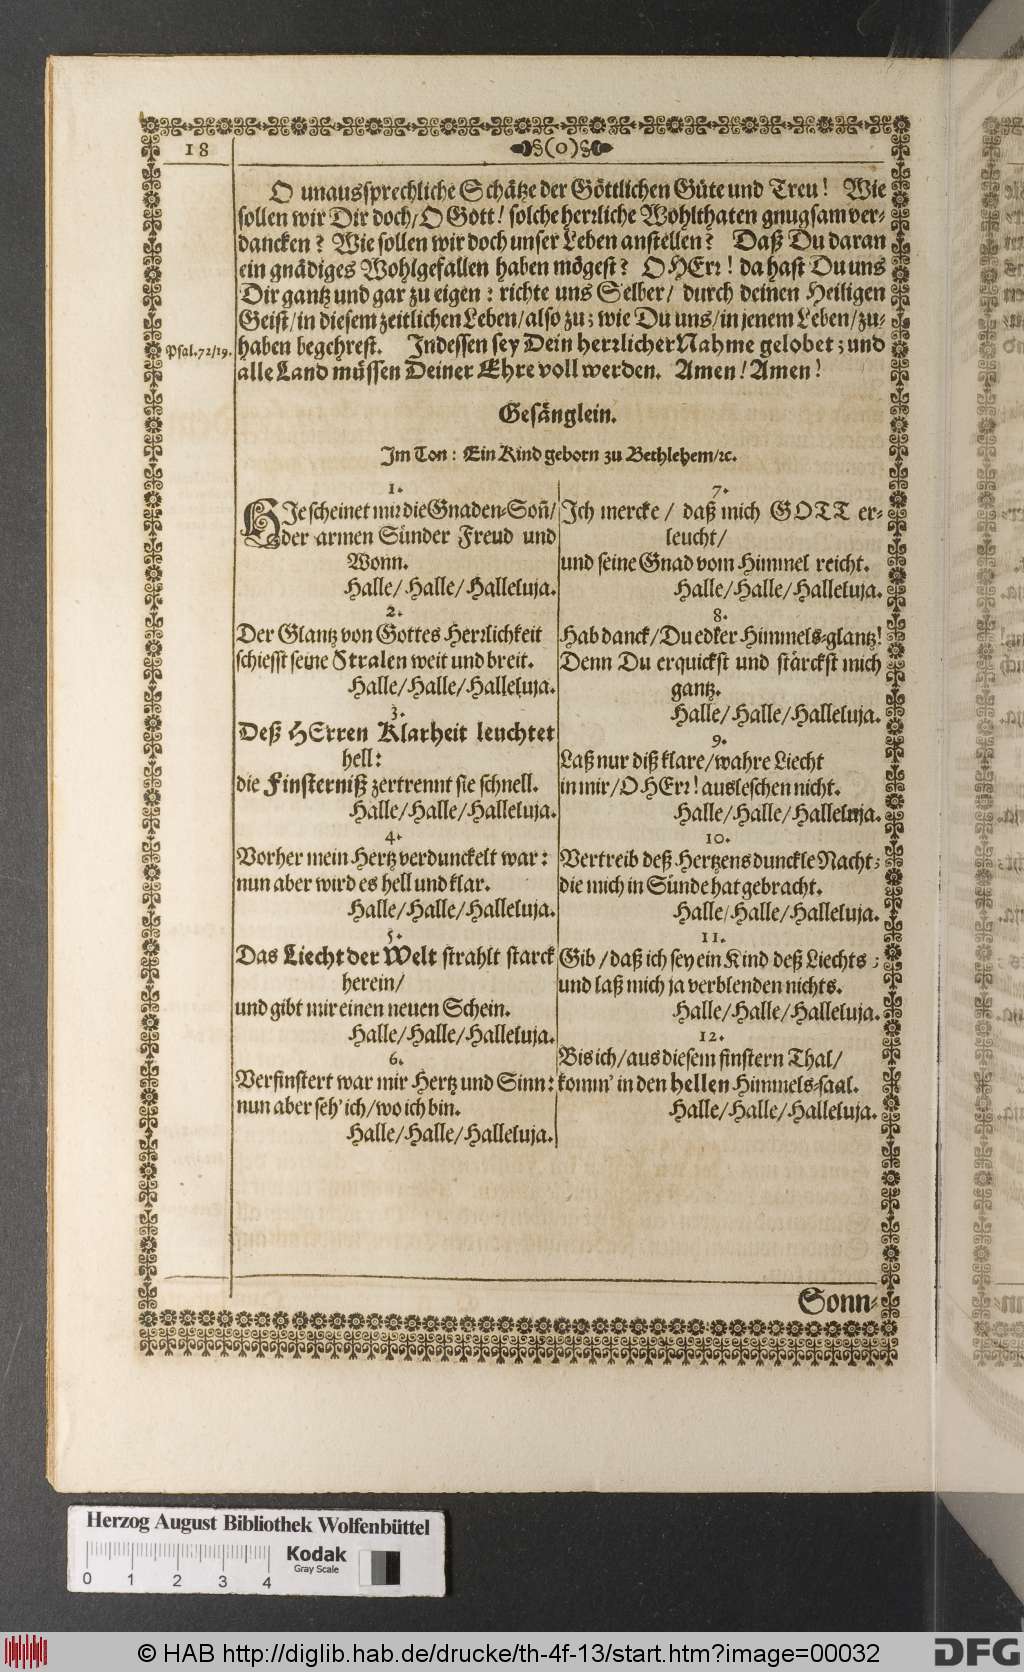 18
§(0)§
O unaussprechliche Schätze der Göttlichen Güte und Treu! Wie
sollen wir Dir doch/ O Gott! solche herꝛliche Wohlthaten gnugsam ver-
dancken? Wie sollen wir doch unser Leben anstellen? Daß Du daran
ein gnädiges Wohlgefallen haben mögest? O HErꝛ! da hast Du uns
Dir gantz und gar zu eigen: richte uns Selber/ durch deinen Heiligen
Geist/ in diesem zeitlichen Leben/ also zu; wie Du uns/ in jenem Leben/ zu-
Psal. 72/19.
haben begehrest. Indessen sey Dein herꝛlicher Nahme gelobet; und
alle Land müssen Deiner Ehre voll werden. Amen! Amen!
Gesänglein.
Im Ton: Ein Kind geborn zu Bethlehem/ ꝛc.
1.
HIe scheinet mir die Gnaden-Soñ/
der armen Sünder Freud und
Wonn.
Halle/ Halle/ Halleluja.
2.
Der Glantz von Gottes Herꝛlichkeit
schiesst seine Stralen weit und breit.
Halle/ Halle/ Halleluja.
3.
Deß HErren Klarheit leuchtet
hell:
die Finsterniß zertrennt sie schnell.
Halle/ Halle/ Halleluja.
4.
Vorher mein Hertz verdunckelt war:
nun aber wird es hell und klar.
Halle/ Halle/ Halleluja.
5.
Das Liecht der Welt strahlt starck
herein/
und gibt mir einen neuen Schein.
Halle/ Halle/ Halleluja.
6.
Verfinstert war mir Hertz und Sinn:
nun aber seh' ich/ wo ich bin.
Halle/ Halle/ Halleluja.
7.
Ich mercke/ daß mich GOTT er-
leucht/
und seine Gnad vom Himmel reicht.
Halle/ Halle/ Halleluja.
8.
Hab danck/ Du edler Himmels-glantz!
Denn Du erquickst und stärckst mich
gantz.
Halle/ Halle/ Halleluja.
9.
Laß nur diß klare/ wahre Liecht
in mir/ O HErꝛ! ausleschen nicht.
Halle/ Halle/ Halleluja.
10.
Vertreib deß Hertzens dunckle Nacht;
die mich in Sünde hat gebracht.
Halle/ Halle/ Halleluja.
11.
Gib/ daß ich sey ein Kind deß Liechts;
und laß mich ja verblenden nichts.
Halle/ Halle/ Halleluja.
12.
Bis ich/ aus diesem finstern Thal/
komm' in den hellen Himmels-saal.
Halle/ Halle/ Halleluja.
Sonn-
Herzog August Bibliothek Wolfenbüttel
Kodak
Gray Scale
0 1 2 3 4
© HAB http://diglib.hab.de/drucke/th-4f-13/start.htm?image=00032
DFG